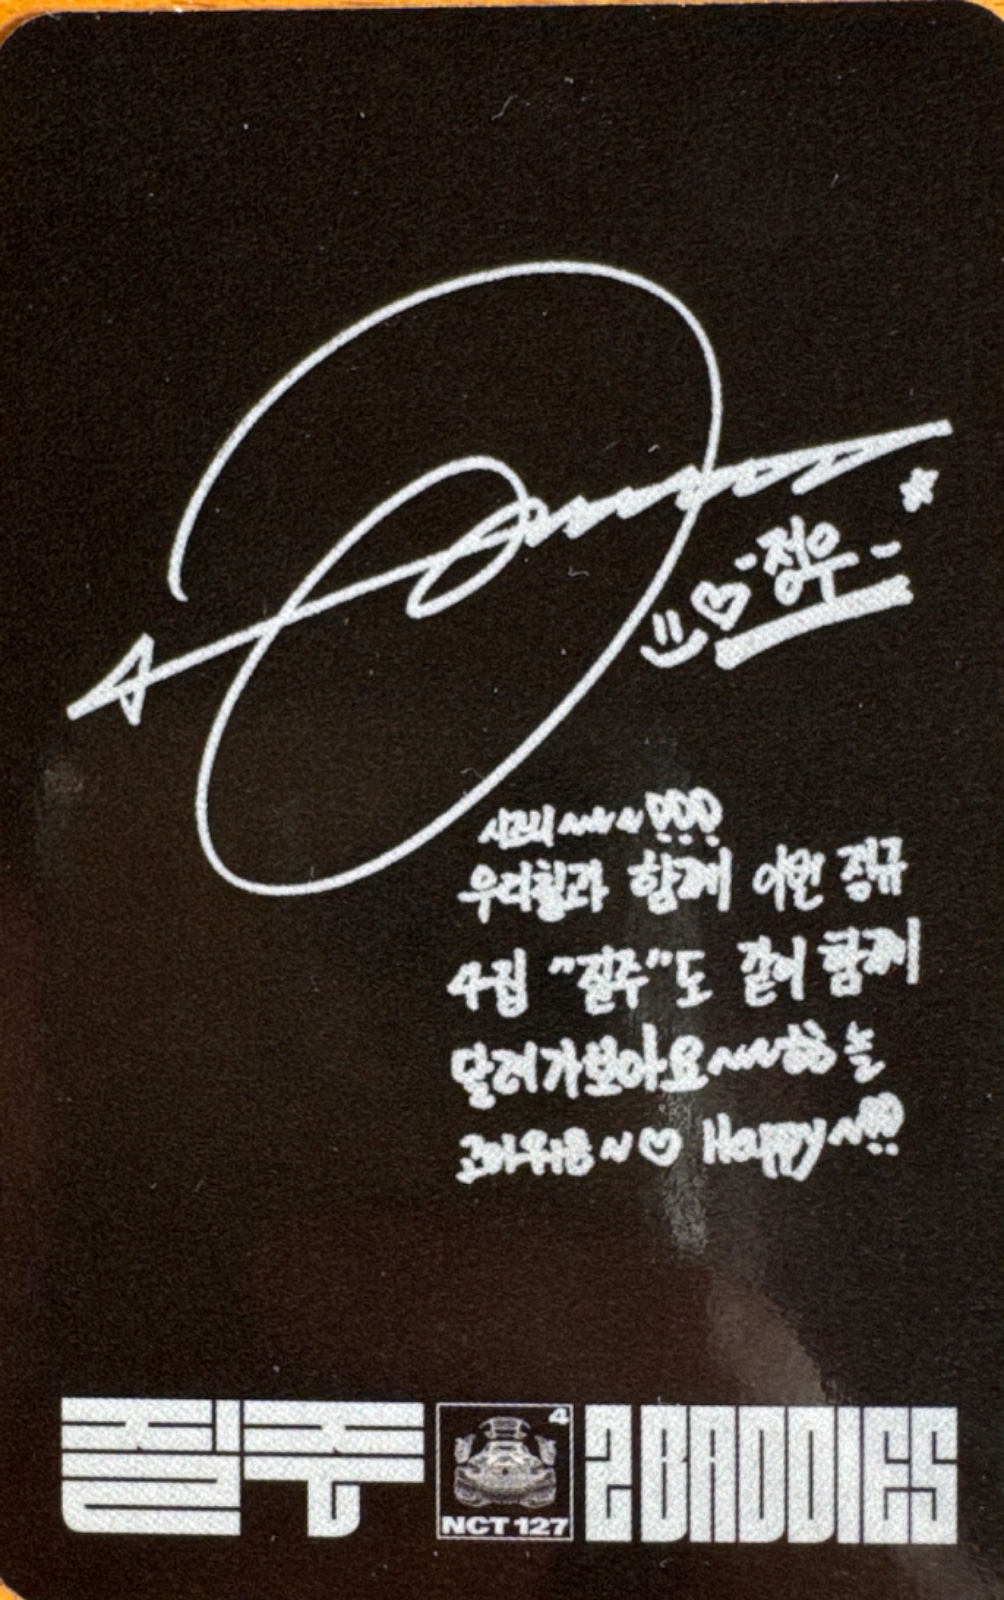 정우
시즈니~~~!!!
우리칠과 함께 이번 정규
4집 "질주"도 같이 함께
달려가보아요~~~ 항상 늘
고마워용~♡ Happy~!!!
질주
4
NCT 127
2 BADDIES